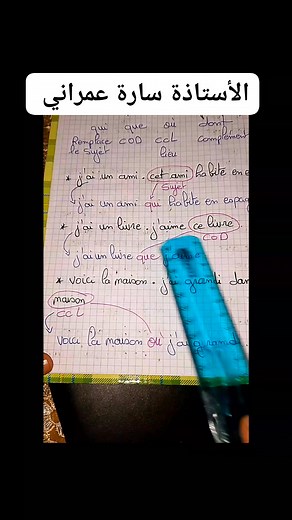 الأستاذة سارة عمراني
qui que où dont
Remplace COD CCL complément
le sujet lieu
* j'ai un ami. cet ami habite en
sujet
j'ai un ami qui habite en espag
* j'ai un livre. j'aime ce livre.
COD
j'ai un livre que j'aime
* Voici la maison. j'ai grandi dan
maison
CCL
Voici la maison où j'ai grandi.